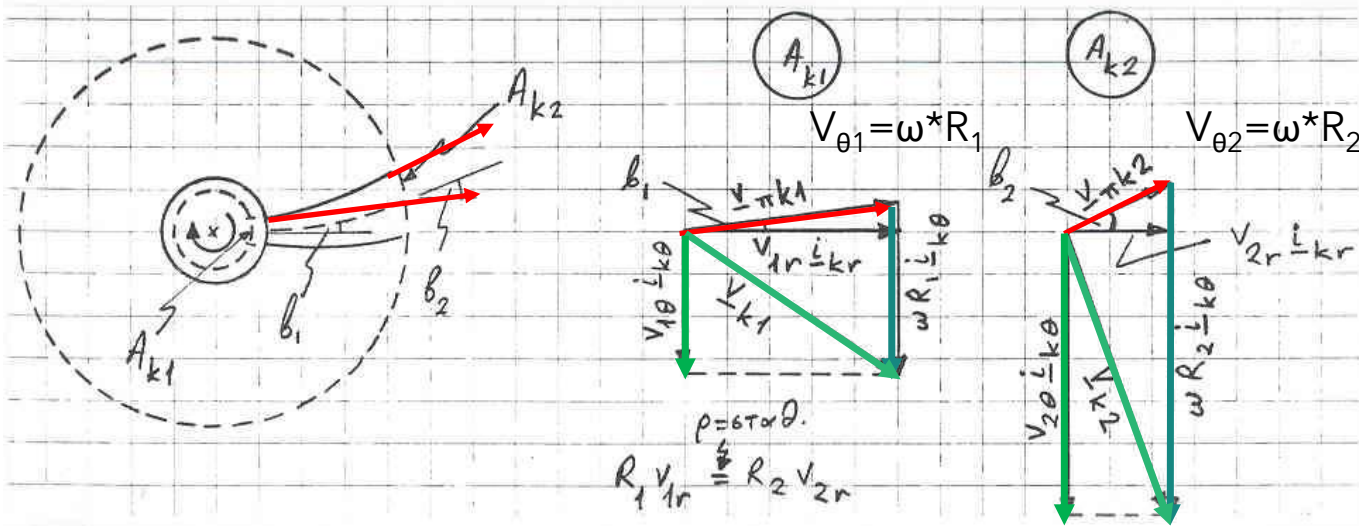 A_k2
b_1
b_2
A_k1
A_k1
V_θ1=ω*R_1
b_1
V_πk1
V_1r i_kr
V_1θ i_kθ
V_k1
ωR_1 i_kθ
ρ=σταθ.
R_1 V_1r = R_2 V_2r
A_k2
V_θ2=ω*R_2
b_2
V_πk2
V_2r i_kr
V_2θ i_kθ
ωR_2 i_kθ